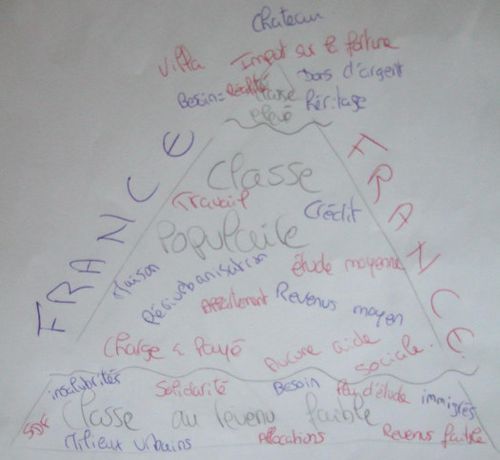 Chateau
Villa
Impot sur le fortune
Dons d'argent
Besoin = réalité
classe
élevé
Héritage
FRANCE
FRANCE
Classe
Travail
Crédit
Populaire
Maison
Périurbanisation
étude moyenne
Appartement
Revenus moyen
Charge à Payé
Aucune aide
sociale.
insalubrités
Solidarité
Besoin
Peu d'étude
immigrés
SDF
Classe au revenu faible
Milieux urbains
Allocations
Revenus faible